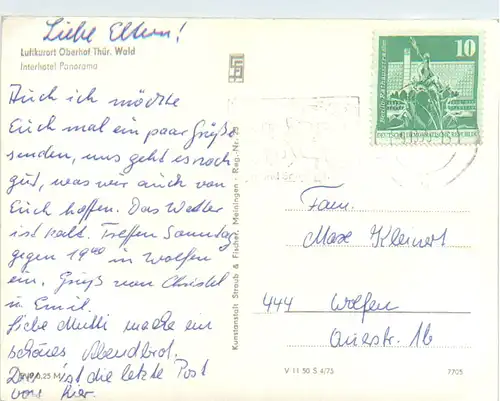 Liebe Eltern!
Luftkurort Oberhof Thür. Wald
Interhotel Panorama
Auch ich möchte
Euch mal ein paar Grüße
senden, uns geht es noch
gut, was wir auch von
Euch hoffen. Das Wetter
ist kalt. Treffen Sonntag
gegen 19⁰⁰ in Wolfen
ein. Gruß von Christel
u. Emil.
Liebe Mutti mache ein
schönes Abendbrot.
Das ist die letzte Post
von hier.
0,25 M
Kunstanstalt Straub & Fischer, Meiningen - Reg.-Nr.
10
Berlin, Rathausstraße
DEUTSCHE DEMOKRATISCHE REPUBLIK
Fam.
Max Kleinert
444 Wolfen
Querstr. 16
V 11 50 S 4/75
7705